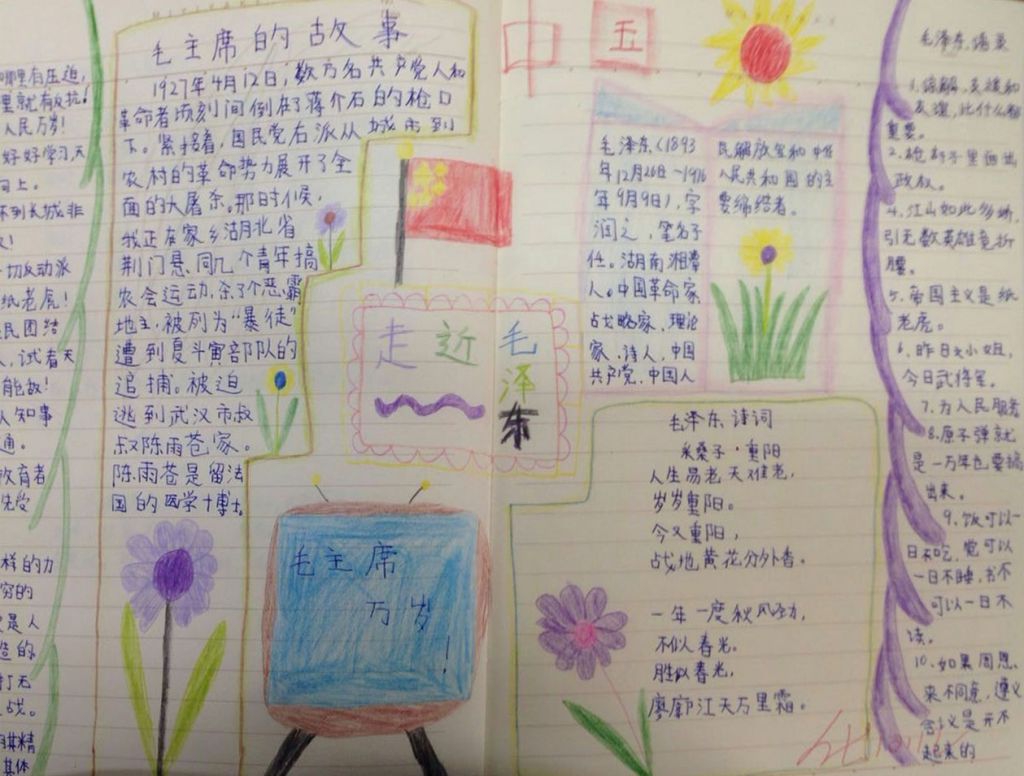 哪里有压迫,
里就有反抗!
人民万岁!
好好学习,天
向上。
不到长城非
一切反动派
纸老虎!
民团结
人,试看天
能敌!
人知事
通。
教育者
先受
样的力
穷的
是人
造的
打无
战。
其精
其体
毛主席的故事
1927年4月12日,数万名共产党人和
革命者顷刻间倒在了蒋介石的枪口
下。紧接着,国民党右派从城市到
农村的革命势力展开了全
面的大屠杀。那时候,
我正在家乡湖北省
荆门县,同几个青年搞
农会运动,杀了个恶霸
地主,被列为“暴徒”
遭到夏斗寅部队的
追捕。被迫
逃到武汉市叔
叔陈雨苍家。
陈雨苍是留法
国的医学博士,
毛主席
万岁!
走近毛
泽
东
中五
毛泽东(1893
年12月26日~1976
年9月9日),字
润之,笔名子
任。湖南湘潭
人。中国革命家
战略家、理论
家、诗人,中国
共产党、中国人
民解放军和中华
人民共和国的主
要缔结者。
毛泽东诗词
采桑子·重阳
人生易老天难老,
岁岁重阳。
今又重阳,
战地黄花分外香。
一年一度秋风劲,
不似春光。
胜似春光,
廖廓江天万里霜。
毛泽东语录
1.谅解、支援和
友谊,比什么都
重要。
2.枪杆子里面出
政权。
4.江山如此多娇,
引无数英雄竞折
腰。
5.帝国主义是纸
老虎。
6.昨日文小姐,
今日武将军。
7.为人民服务
8.原子弹就
是一万年也要搞
出来。
9.饭可以一
日不吃,觉可以
一日不睡,书不
可以一日不
读。
10.如果周恩
来不同意,遵义
会议是开不
起来的